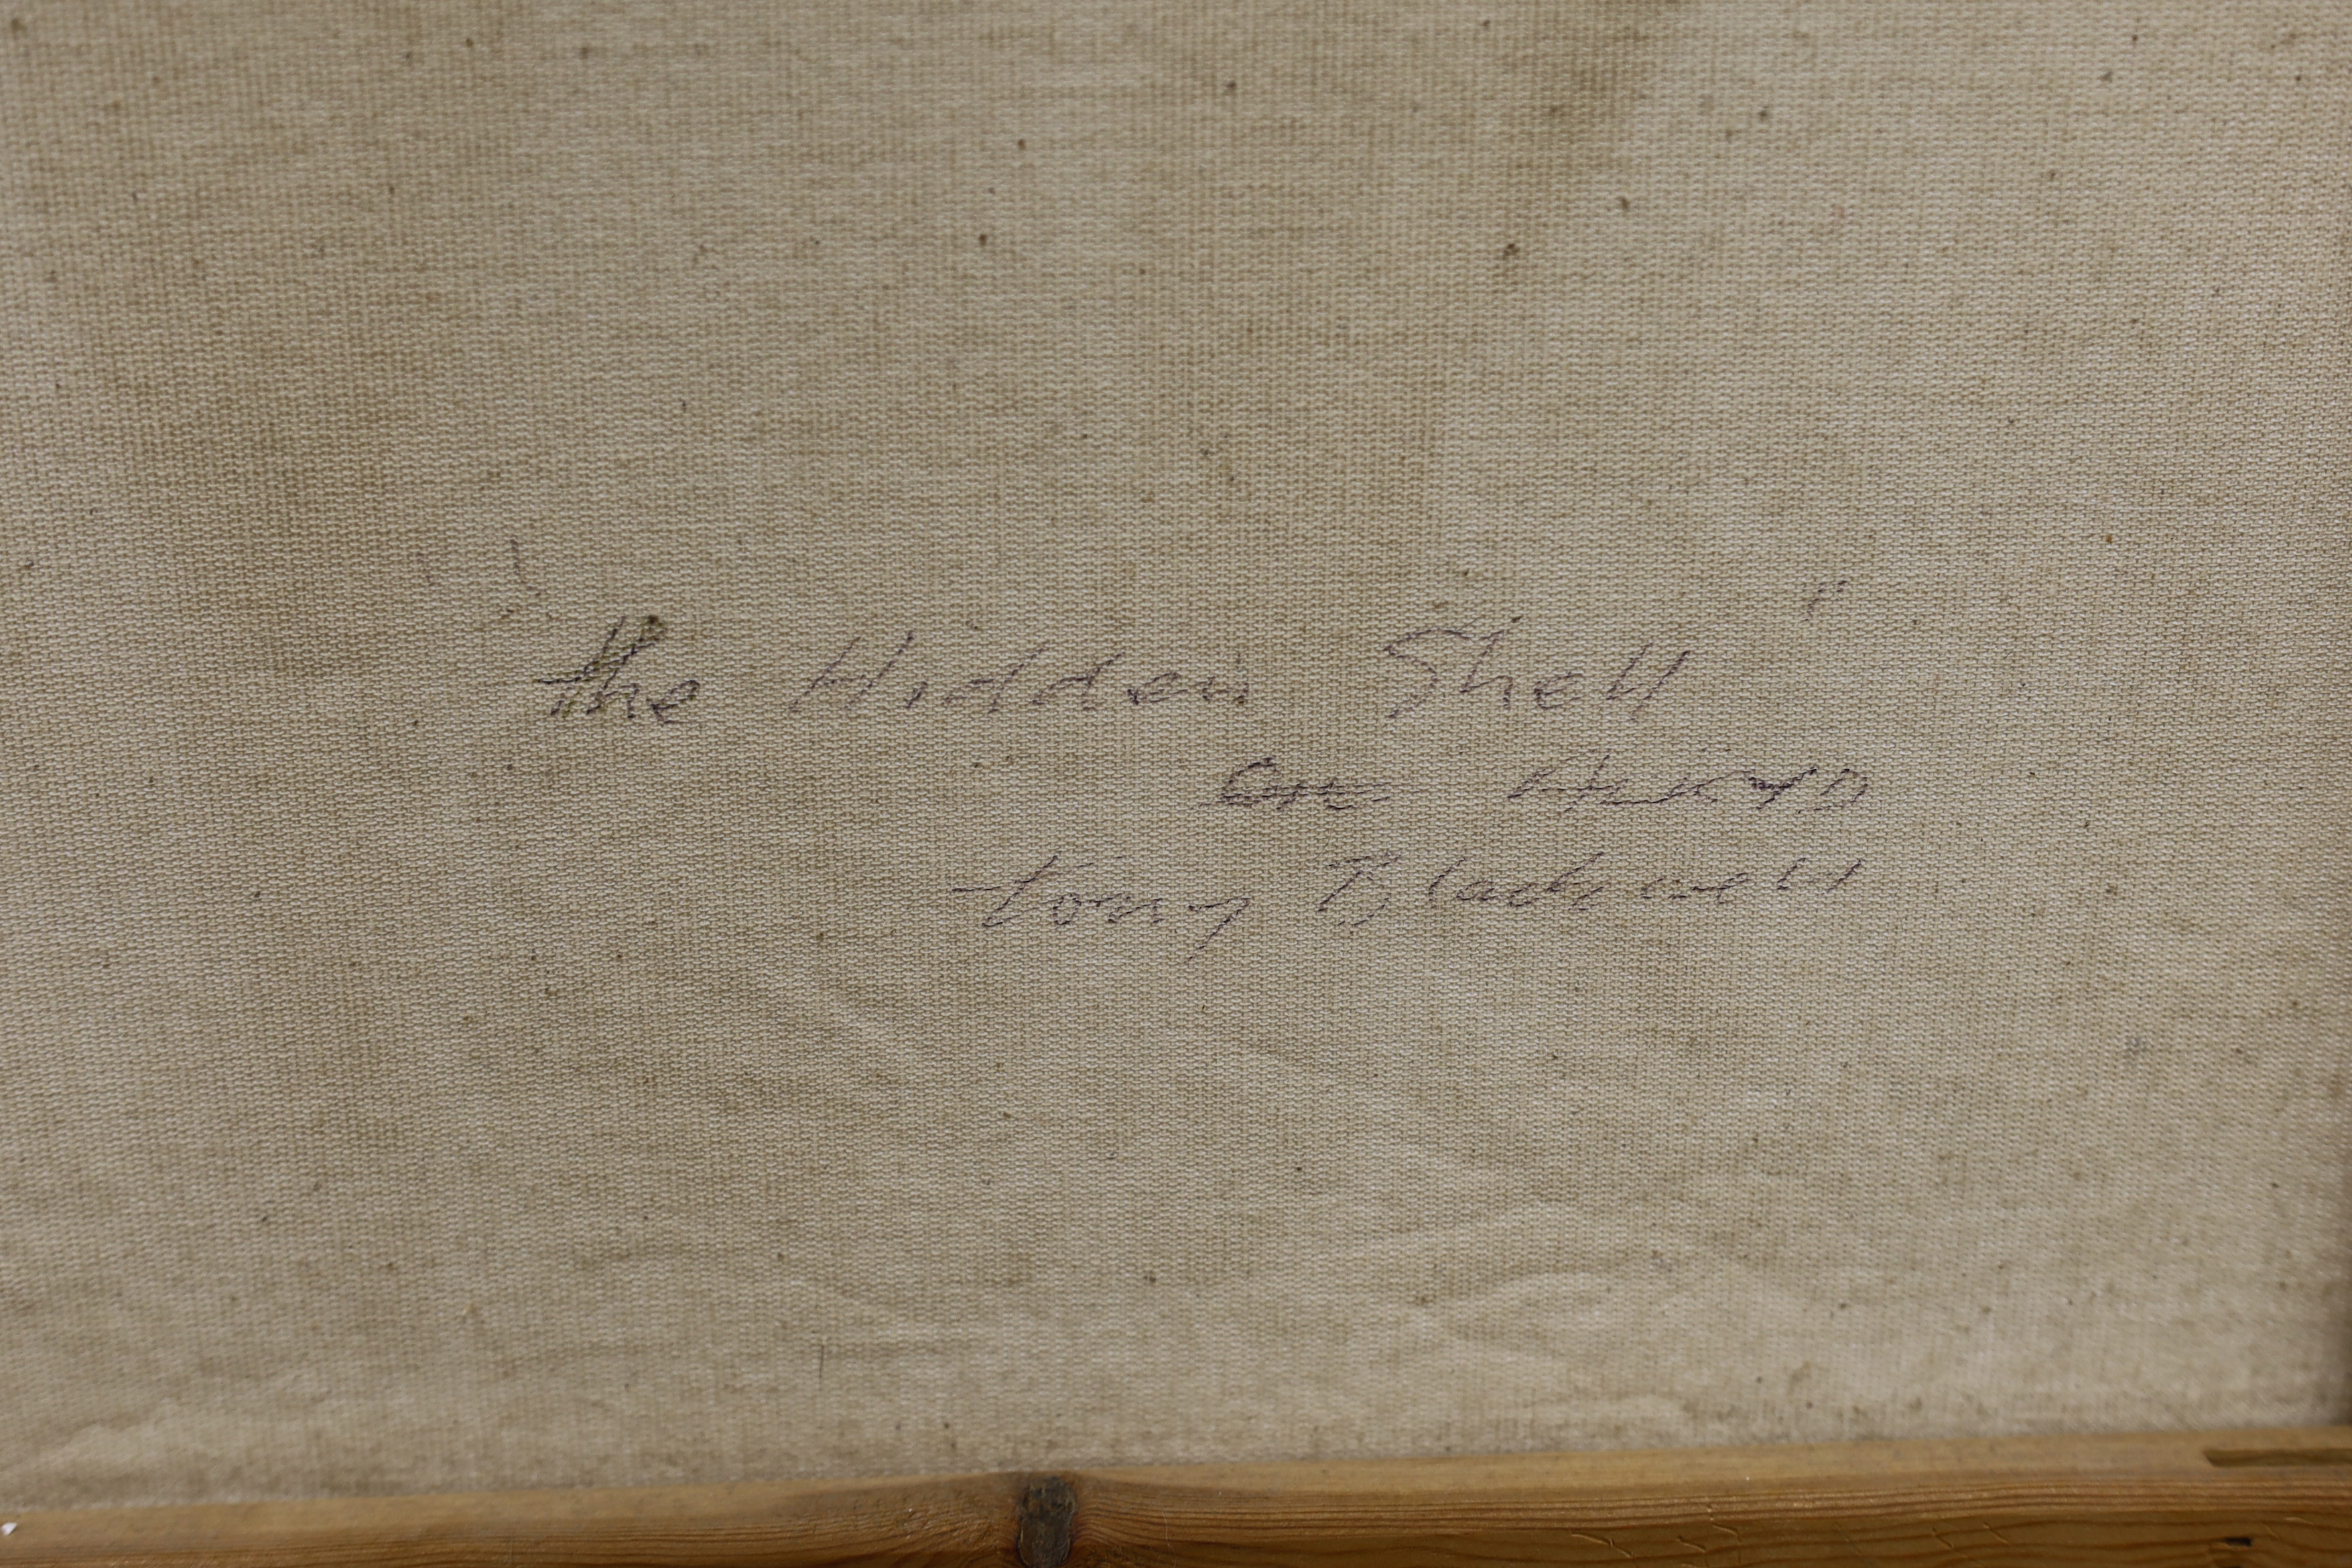 the Hidden Shell"
Tony Blackwell